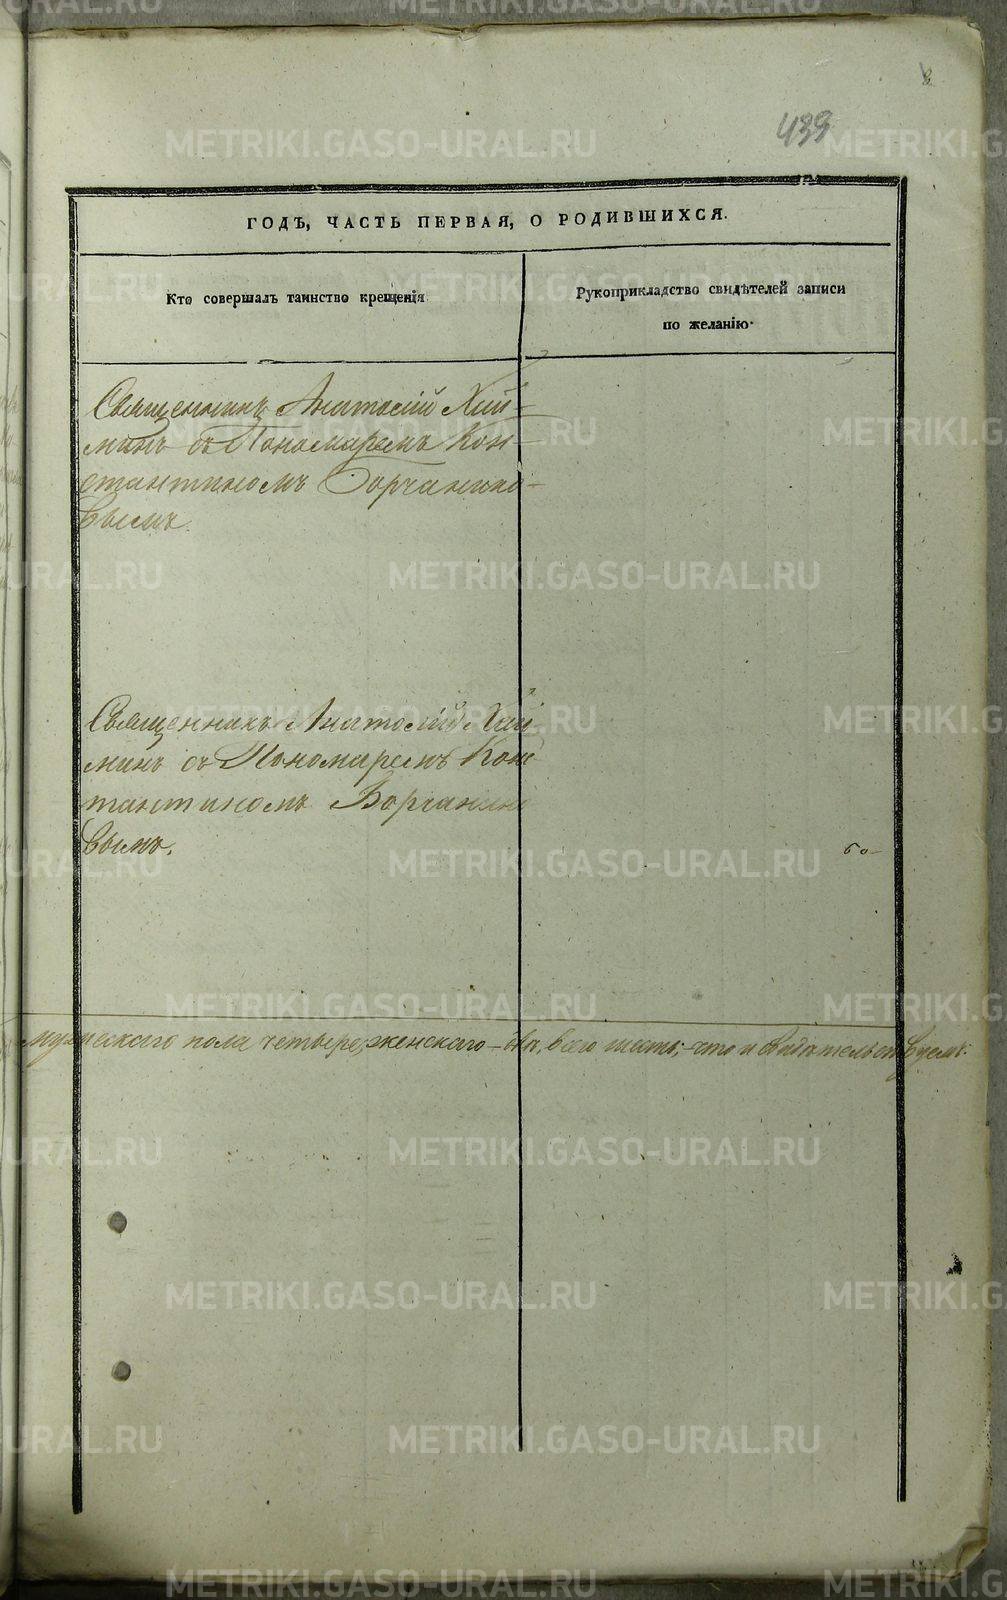 439
ГОДЪ, ЧАСТЬ ПЕРВАЯ, О РОДИВШИХСЯ.
Кто совершалъ таинство крещенія
Рукоприкладство свидѣтелей записи
по желанію.
Священникъ Анатолій Хий-
минъ съ Пономаремъ Кон-
стантиномъ Борчанино-
вымъ.
Священникъ Анатолій Хий-
минъ съ Пономаремъ Конс
тантиномъ Борчанино
вымъ.
мужескаго пола четыре, женскаго – двѣ, всего шесть; что и свидѣтельствуемъ:
METRIKI.GASO-URAL.RU